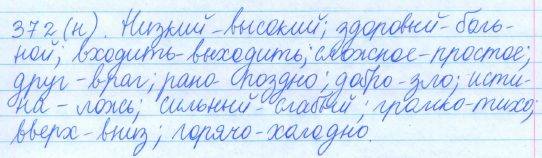 372(н). Низкий-высокий; здоровый-боль-
ной; входить-выходить; сложное-простое;
друг-враг; рано-поздно; добро-зло; исти-
на-ложь; сильный-слабый; громко-тихо;
вверх-вниз; горячо-холодно.